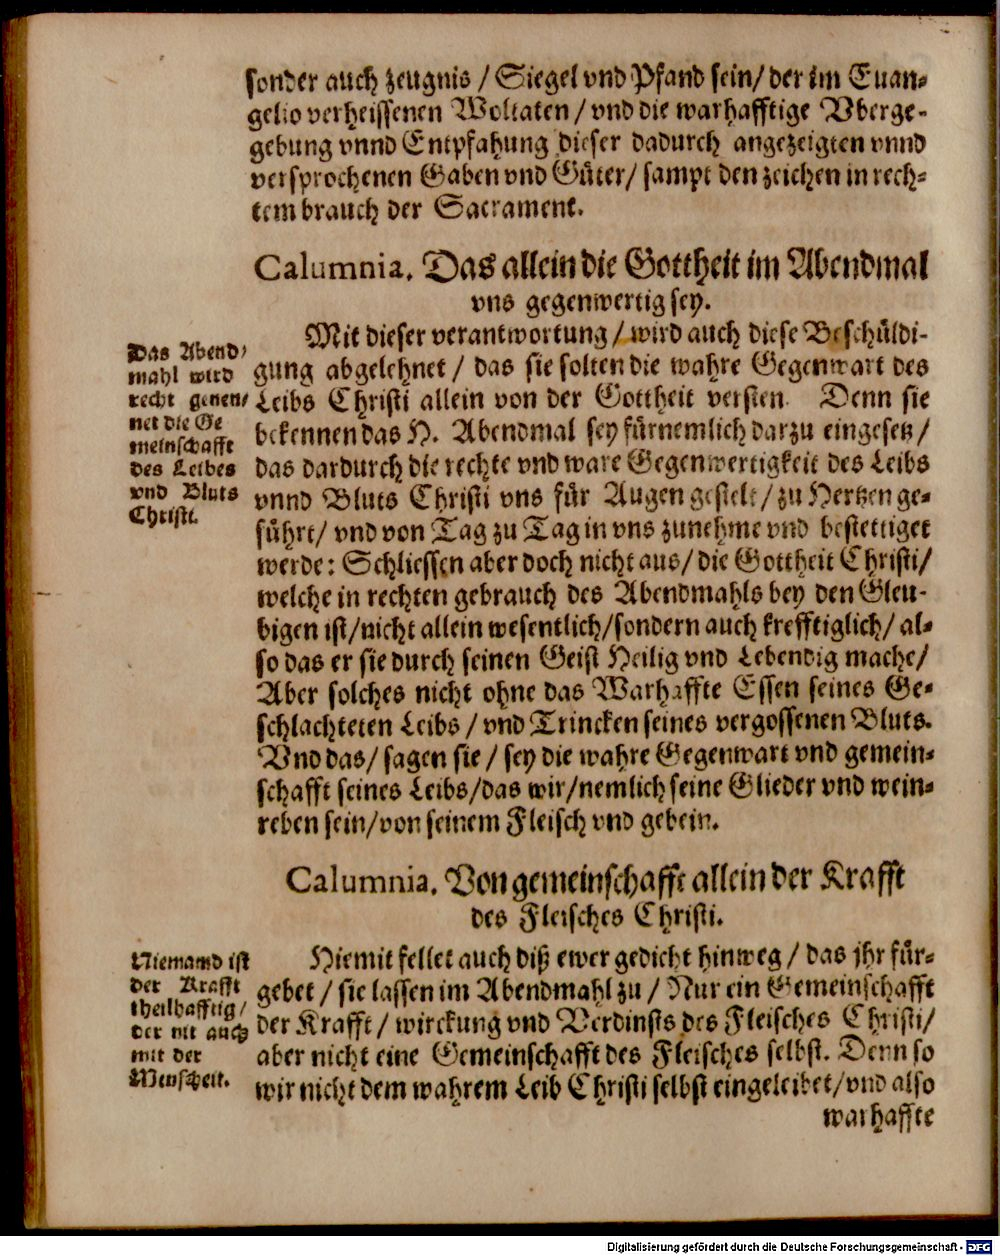 sonder auch zeugnis / Siegel vnd Pfand sein/ der im Euan-
gelio verheissenen Woltaten / vnd die warhafftige Vberge-
gebung vnnd Entpfahung dieser dadurch angezeigten vnnd
versprochenen Gaben vnd Güter/ sampt den zeichen in rech-
tem brauch der Sacrament.
Calumnia. Das allein die Gottheit im Abendmal
vns gegenwertig sey.
Mit dieser verantwortung / wird auch diese Beschüldi-
gung abgelehnet / das sie solten die wahre Gegenwart des
Leibs Christi allein von der Gottheit versten. Denn sie
bekennen das H. Abendmal sey fürnemlich darzu eingesetz /
das dardurch die rechte vnd ware Gegenwertigkeit des Leibs
vnnd Bluts Christi vns für Augen gestelt / zu Hertzen ge-
führt/ vnd von Tag zu Tag in vns zunehme vnd bestettiget
werde: Schliessen aber doch nicht aus/ die Gottheit Christi/
welche in rechten gebrauch des Abendmahls bey den Gleu-
bigen ist/nicht allein wesentlich/sondern auch krefftiglich/ al-
so das er sie durch seinen Geist Heilig vnd Lebendig mache/
Aber solches nicht ohne das Warhaffte Essen seines Ge-
schlachteten Leibs / vnd Trincken seines vergossenen Bluts.
Vnd das/ sagen sie / sey die wahre Gegenwart vnd gemein-
schafft seines Leibs/das wir/nemlich seine Glieder vnd wein-
reben sein/von seinem Fleisch vnd gebein.
Das Abend/
mahl wird
recht genen/
net die Ge
meinschafft
des Leibes
vnd Bluts
Christi.
Calumnia. Von gemeinschafft allein der Krafft
des Fleisches Christi.
Hiemit fellet auch diß ewer gedicht hinweg / das jhr für-
gebet / sie lassen im Abendmahl zu / Nur ein Gemeinschafft
der Krafft / wirckung vnd Verdinsts des Fleisches Christi/
aber nicht eine Gemeinschafft des Fleisches selbst. Denn so
wir nicht dem wahrem Leib Christi selbst eingeleibet/vnd also
warhaffte
Niemand ist
der Krafft
theilhafftig/
der nit auch
mit der
Menscheit.
Digitalisierung gefördert durch die Deutsche Forschungsgemeinschaft - DFG